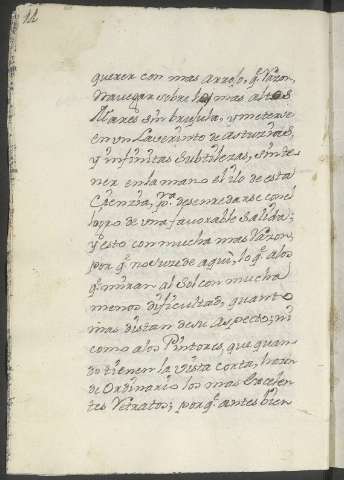 11
querer con mas arrojo, q.e Razon,
Navegar sobre los mas altos
Mares sin brujula, y meterse
en vn Laverinto de asturias,
y infinitas subtilezas, sinte-
ner en la mano el ilo de esta
Ciencia, p.a desenredarse con el
logro de vna favorable salida;
y esto con mucha mas Razon,
por q.e no suzede aqui, lo q.e alos
q.e miran al Sol con mucha
menos dificultad, quanto
mas distan de su aspecto; ni
como alos Pintores, que quan-
do tienen la vista corta, hazen
de Ordinario los mas excelen-
tes Retratos; porq.e antes bien